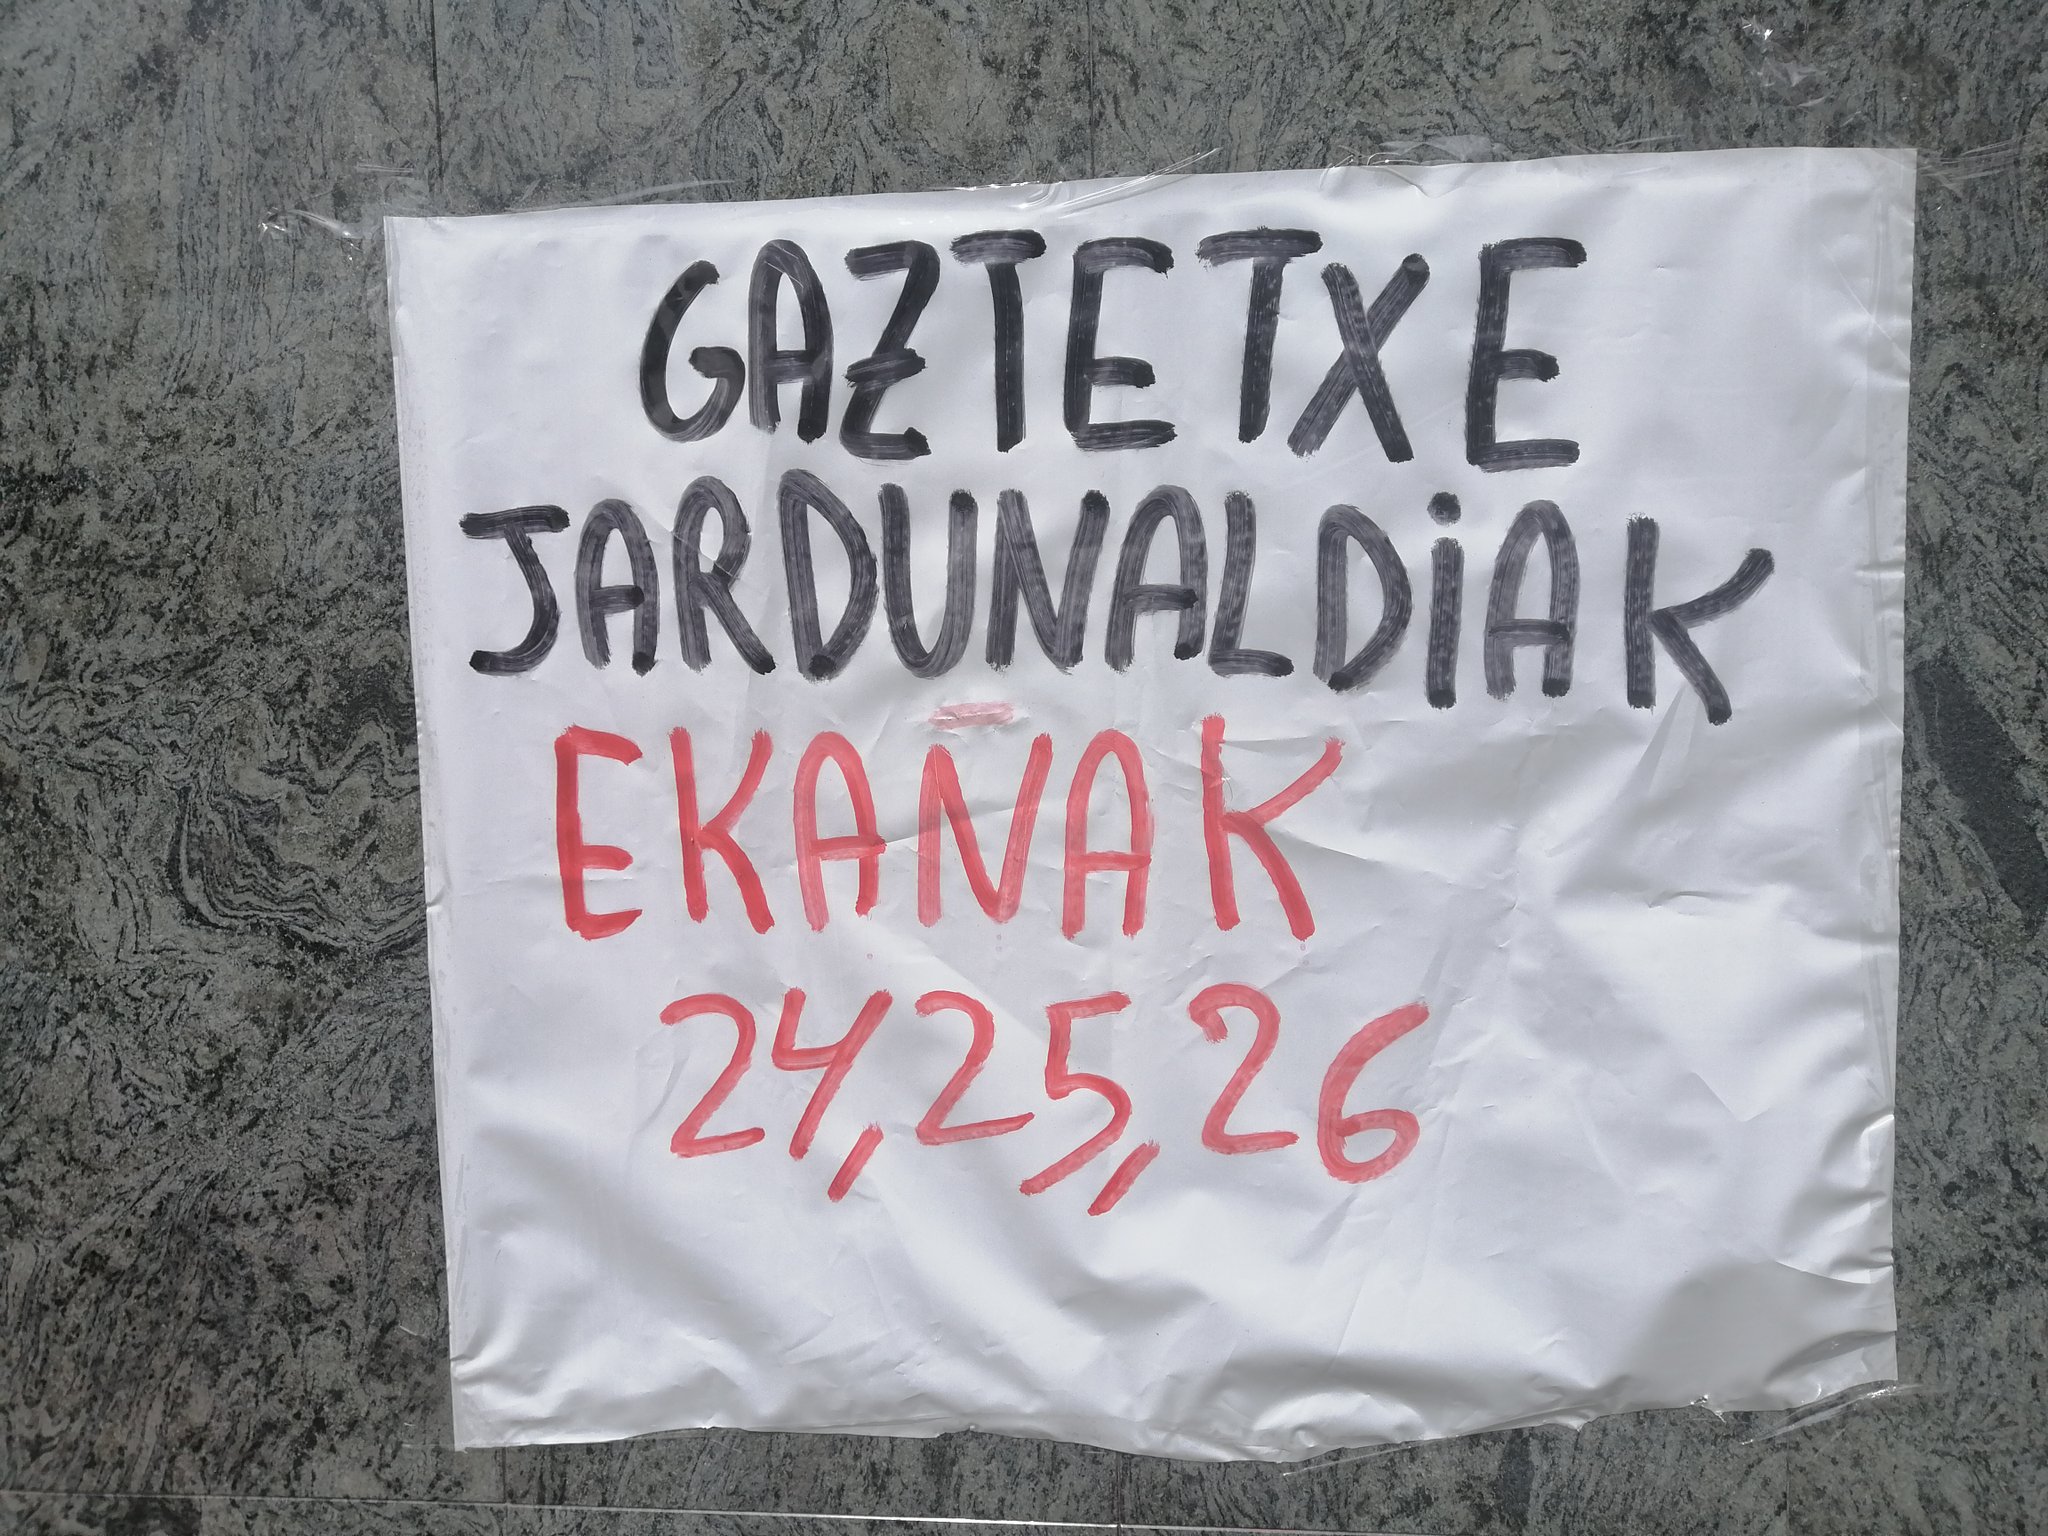 GAZTETXE
JARDUNALDiAK
EKAÑAK
24, 25, 26